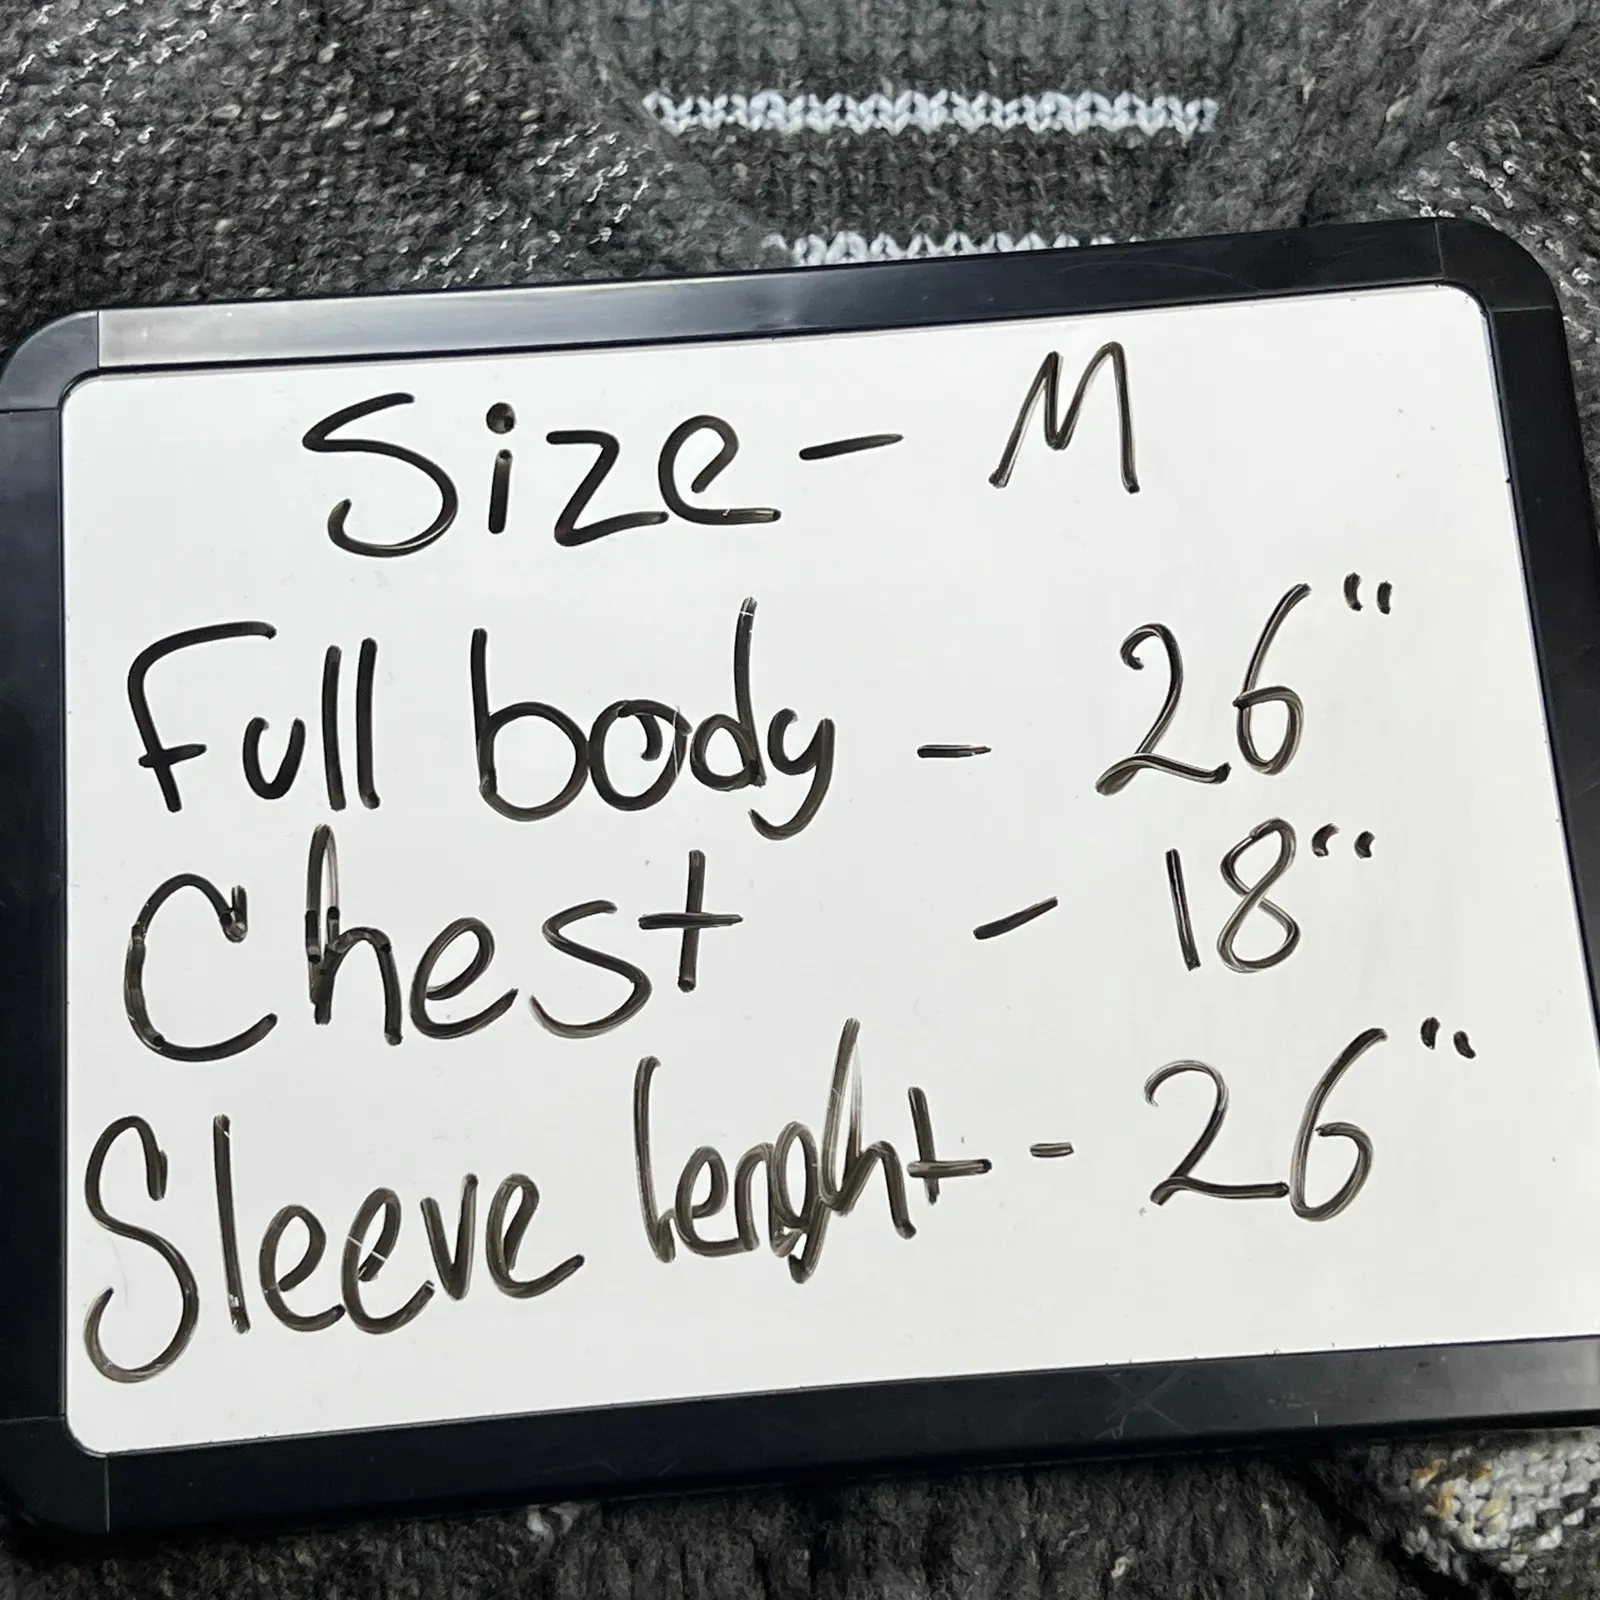 Size - M
Full body - 26"
Chest - 18"
Sleeve lenght - 26"